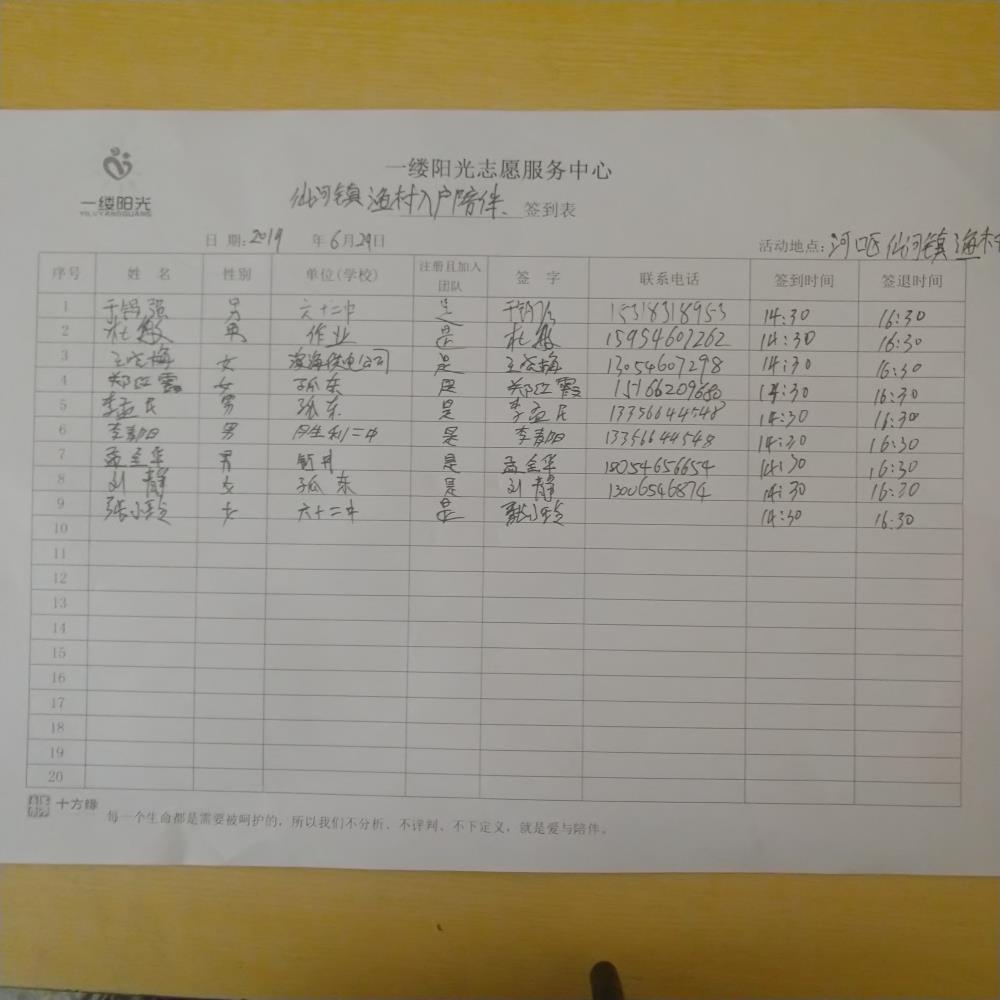 一缕阳光
YILVYANGGUANG
一缕阳光志愿服务中心
仙河镇渔村入户陪伴、签到表
日 期:2019 年6月29日 活动地点:河口区仙河镇渔村
序号 姓 名 性别 单位(学校) 注册且加入团队 签 字 联系电话 签到时间 签退时间
1 男 六十二中 是 15318318953 14:30 16:30
2 男 作业 是 15954607262 14:30 16:30
3 女 滨海供电公司 是 13054607298 14:30 16:30
4 郑红霞 女 孤东 是 郑红霞 15166209680 14:30 16:30
5 李孟民 男 孤东 是 李孟民 13356644548 14:30 16:30
6 李春阳 男 胜利二中 是 李春阳 13356644548 14:30 16:30
7 孟全华 男 钻井 是 孟全华 18054656654 14:30 16:30
8 刘静 女 孤东 是 刘静 13006546874 14:30 16:30
9 张小玲 女 六十二中 是 张小玲 14:30 16:30
10
11
12
13
14
15
16
17
18
19
20
十方缘 每一个生命都是需要被呵护的，所以我们不分析、不评判、不下定义，就是爱与陪伴。